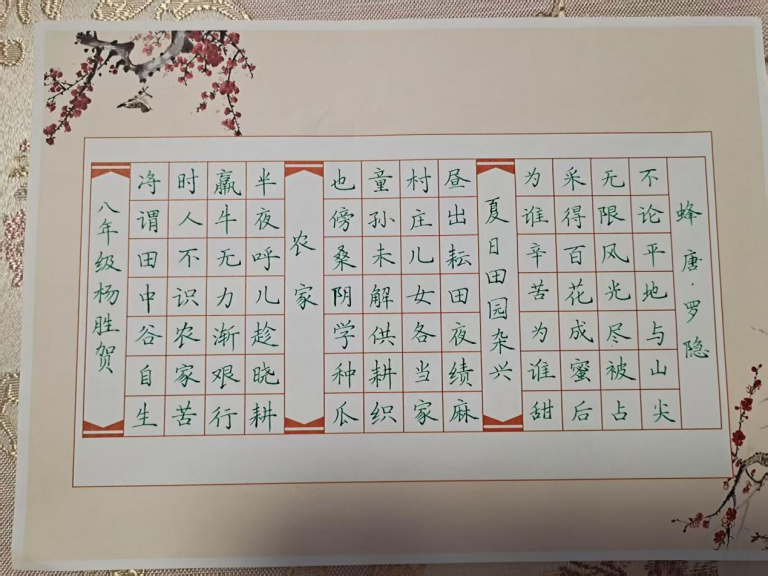 蜂 唐·罗隐
不论平地与山尖
无限风光尽被占
采得百花成蜜后
为谁辛苦为谁甜
夏日田园杂兴
昼出耘田夜绩麻
村庄儿女各当家
童孙未解供耕织
也傍桑阴学种瓜
农家
半夜呼儿趁晓耕
羸牛无力渐艰行
时人不识农家苦
将谓田中谷自生
八年级杨胜贺